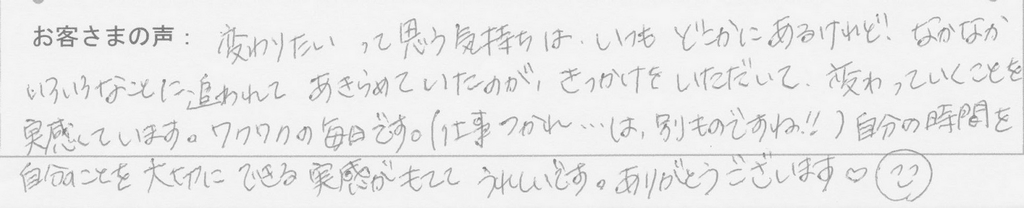 お客さまの声： 変わりたい って思う気持ちは、いつも どこかにあるけれど! なかなか
いろいろなことに追われて あきらめていたのが、きっかけをいただいて、変わっていくことを
実感しています。ワクワクの毎日です。(仕事つかれ…は、別ものですね!!)自分の時間を
自分のことを 大切に できる 実感がもてて うれしいです。ありがとうございます♡